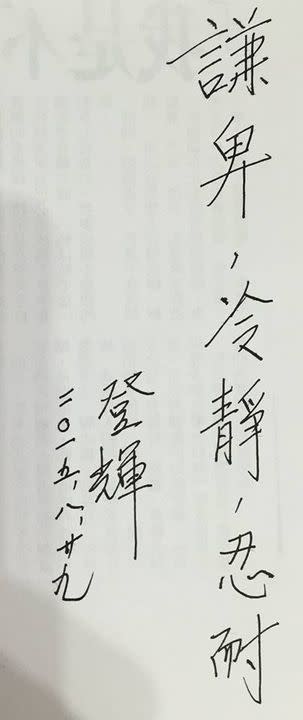 謙卑,冷靜,忍耐
登輝
二〇一五、八、廿九